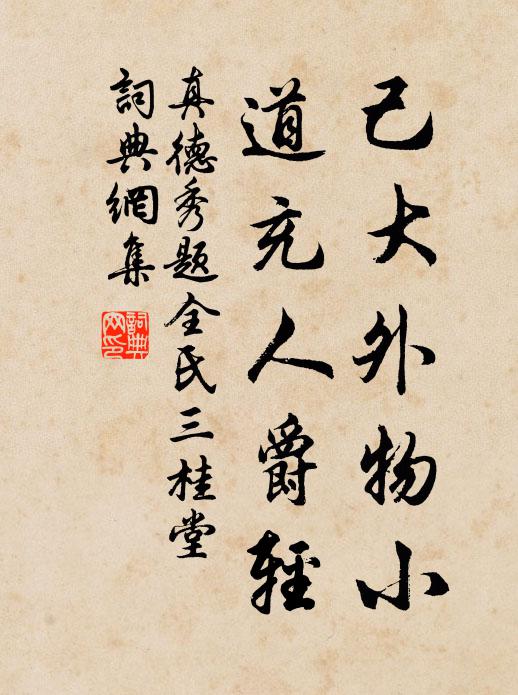 己大外物小
道充人爵輕
真德秀題全氏三桂堂
詞典網集
詞典
网印